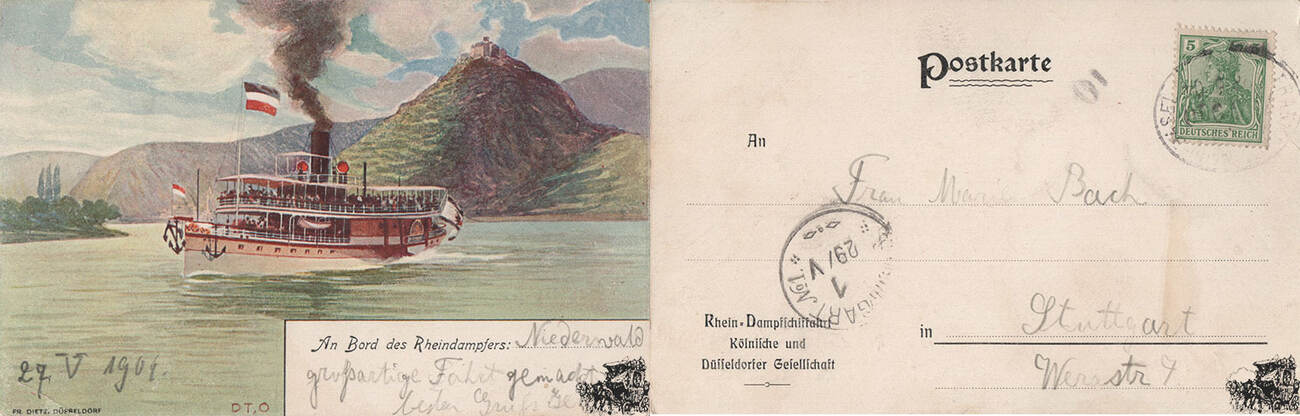 An Bord des Rheindampfers: Niederwald
großartige Fahrt gemacht
bester Gruß
27 V 1901.
FR. DIETZ, DÜSSELDORF
DT, O
Postkarte
10
5
DEUTSCHES REICH
An
Frau Marie Bach
STUTTGART No1.
29/V
1
Rhein-Dampfschiffahrt
Kölnische und
Düsseldorfer Gesellschaft
in Stuttgart
Werastr 7